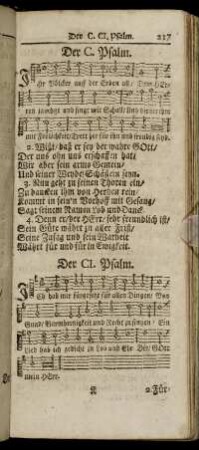 Der C. CI. Psalm. 217
Der C. Psalm.
Ihr Völcker auff der Erden all / Dem HEr-
ren jauchzet und singt mit Schall / Und dienet ihm
mit Fröligkeit / Trett her für ihn und freudig seyd.
2. Wißt / daß er sey der wahre GOtt /
Der uns ohn uns erschaffen hat /
Wir aber sein arme Gemein /
Und seiner Weyde Schäflein seyn.
3. Nun geht zu seinen Thoren ein /
Zu dancken ihm von Hertzen rein /
Kommt in sein'n Vorhoff mit Gesang /
Sagt seinem Namen Lob und Danck.
4. Denn er / der HErr / sehr freundlich ist /
Sein Güte währt zu aller Frist /
Seine Zusag und sein Warheit
Währt für und für in Ewigkeit.
Der CI. Psalm.
Ich hab mir fürgesetzt für allen Dingen / Von
Gnad / Barmhertzigkeit und Recht zu singen / Ein
Lied hab ich gedicht zu Lob und Ehr Dir / GOtt
mein HErr.
2. Für-